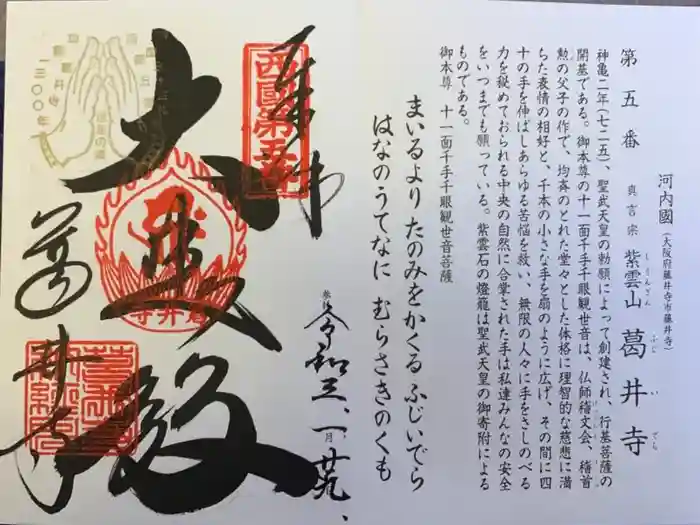 河内國（大阪府藤井寺市藤井寺）
第五番 真言宗 紫雲山 葛井寺
しうんざん ふじいでら
神亀二年（七二五）、聖武天皇の勅願によって創建され、行基菩薩の
開基である。御本尊の十一面千手千眼観世音は、仏師稽文会、稽首
勲の父子の作で、均斉のとれた堂々とした体格に理智的な慈悲に満
ちた表情の相好と、千本の小さな手を扇のように広げ、その間に四
十の手を伸ばしあらゆる苦悩を救い、無限の人々に手をさしのべる
力を秘めておられる中央の自然に合掌された手は私達みんなの安全
をいつまでも願っている。紫雲石の燈籠は聖武天皇の御寄附による
ものである。
御本尊 十一面千手千眼観世音菩薩
まいるより たのみをかくる ふじいでら
はなのうてなに むらさきのくも
奉拝
西國第五番
大悲殿
令和三、一月廿九、
葛井寺
一三〇〇年